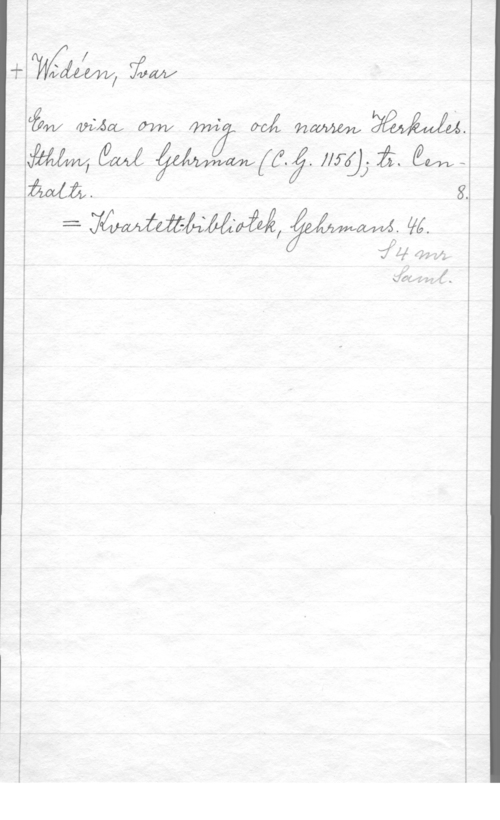 + Widéen, Ivar
En visa om mig och narren Herkules.
Sthlm, Carl Gehrman (C. G. 1156); tr. Cen-
traltr. 8.
= Kvartettbibliotek, Gehrmans. 46.
S 4 mr
Saml.